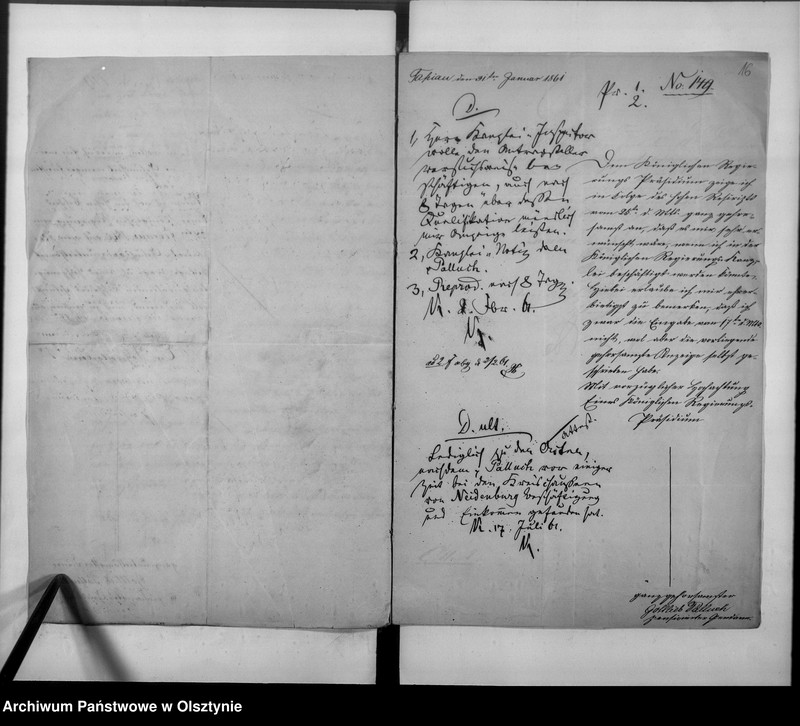 16
Tapiau, den 31ten Januar 1861
Pr. 1. No. 149.
2.
D.
1, Herr Kanzlei-Inspektor
wolle den Antragsteller
versuchsweise be-
schäftigen, auch nach
8 Tagen über dessen
Qualifikation mündlich
mir Anzeige leisten.
2, Kanzlei-Notiz
Palluch.
3, Reprod. nach 8 Tagen
2. Fbr. 61.
Dem Königlichen Regie-
rungs Präsidium zeige ich
in Folge des hohen Rescripts
vom 28ten d. Mts. ganz gehor-
samst an, daß es mir sehr er-
wünscht wäre, wenn ich in der
Königlichen Regierungs Kanz-
lei beschäftigt werden könnte.
Hiebei erlaube ich mir ehrer-
bietigst zu bemerken, daß ich
zwar die Eingabe vom 17ten d. Mts.
nicht, wol aber die vorliegende
gehorsamste Anzeige selbst ge-
schrieben habe.
Mit vorzüglicher Hochachtung
Eines Königlichen Regierungs-
Präsidium
D. ult.
Lediglich zu den Acten,
nachdem Palluch vor einiger
Zeit bei den Kreischausseen
von Neidenburg Beschäftigung
und Einkommen gefunden hat.
17. Juli 61.
ganz gehorsamster
Gottlieb Palluch
pensionirter Gendarm
Archiwum Państwowe w Olsztynie